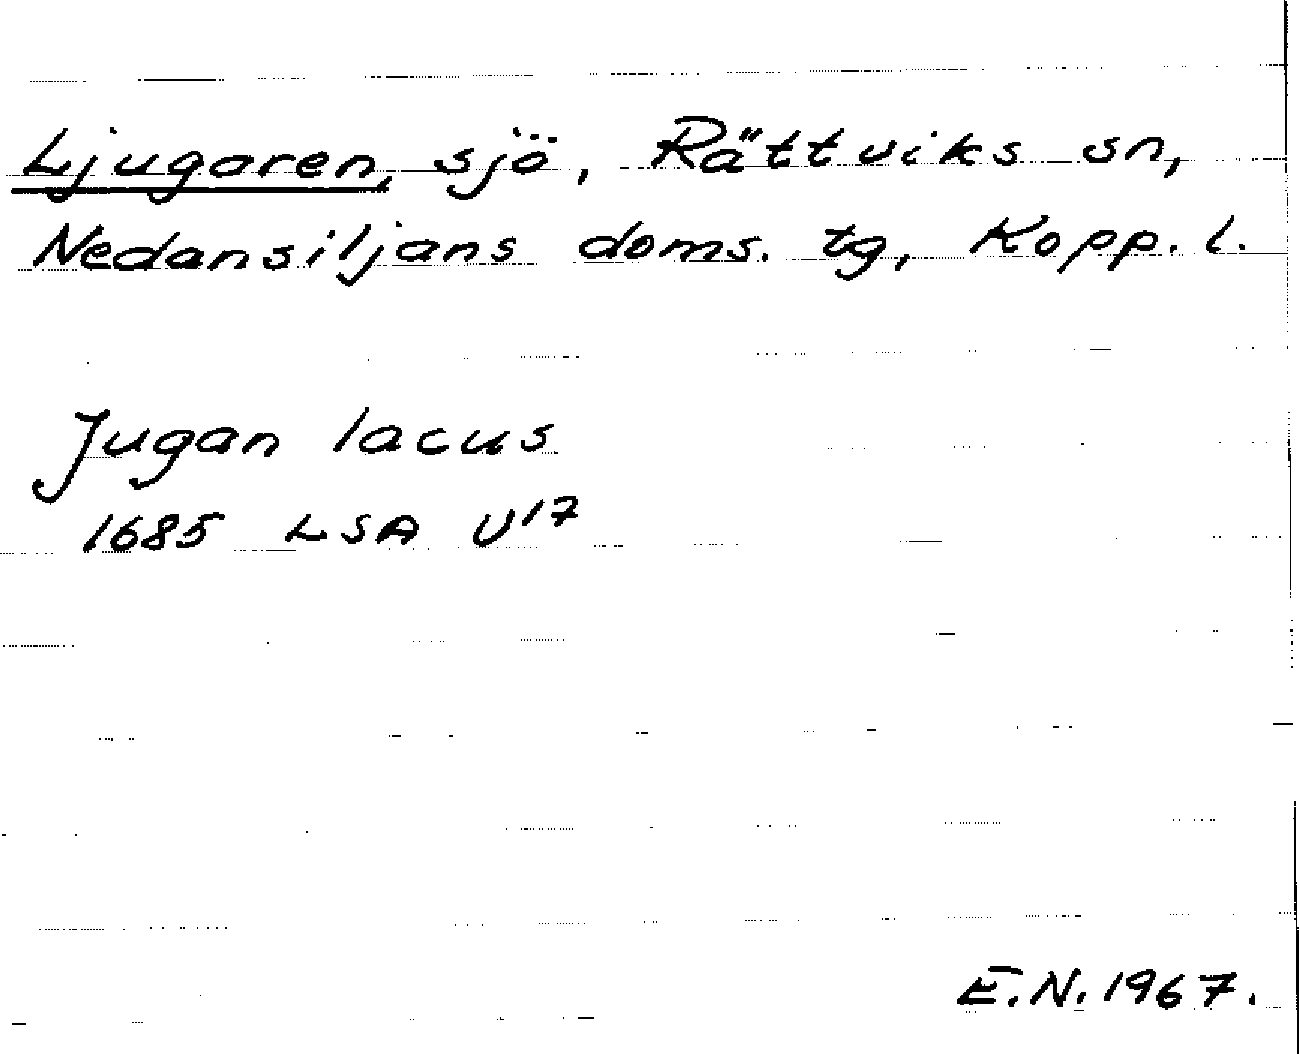 Ljugaren, sjö, Rättviks sn,
Nedansiljans doms. tg, Kopp. l.
Jugan lacus
1685 LSA U17
E.N. 1967.